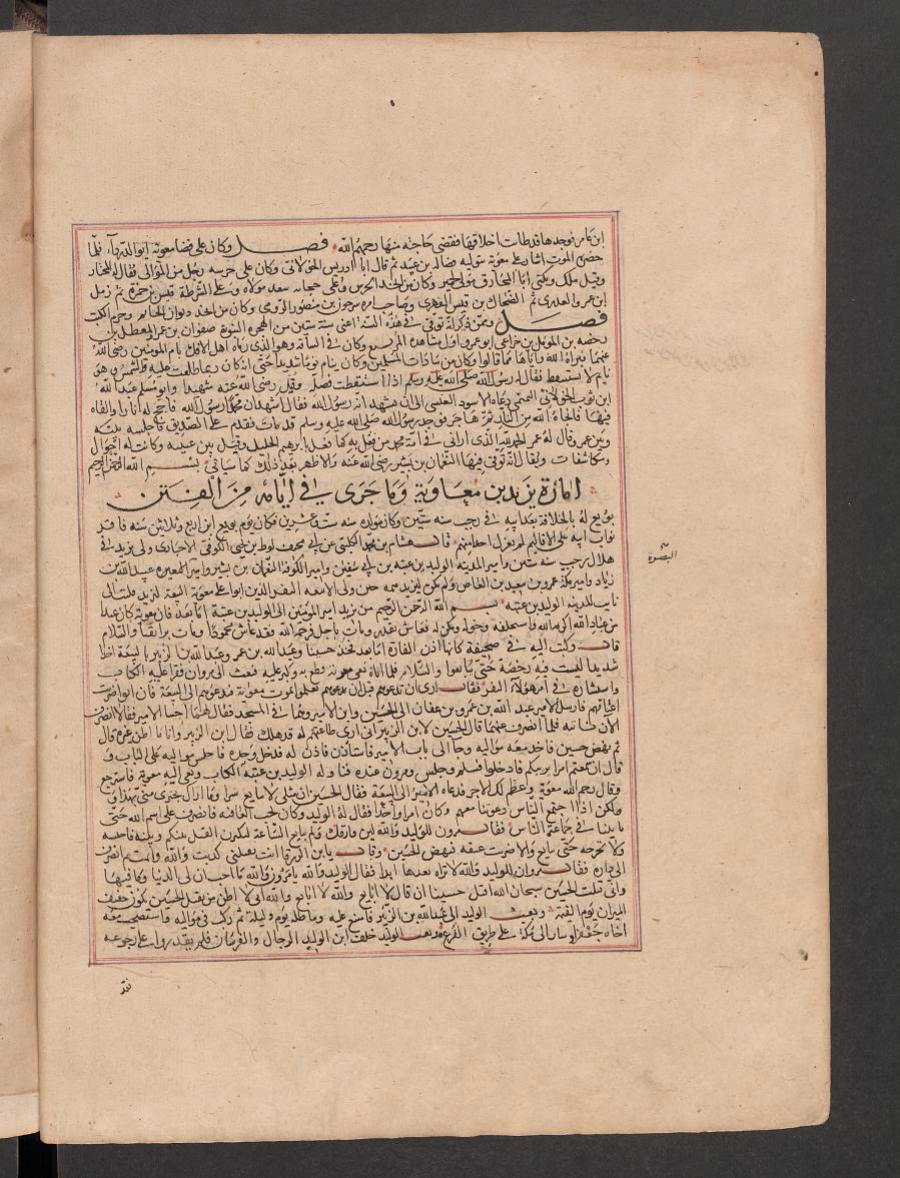 ابن عامر فوجدها قد طاب اخلاقها فقضى حاجته منها رحمهم الله فصل وكان على قضا معوية ابو الدرداء فلما
حضره الموت اشار على معوية بتوليه فضالة بن عبيد ثم قال ابا ادريس الخولاني وكان على حرسه رجل من الموالي فقال له المختار
وقيل ملك ويكنى ابا المخارق مولى حمير وكان من اتخذ الحرس وعلى حجابه سعد مولاه وعلى الشرطة قيس بن حمزة ثم زمل
ابن عمرو العذري ثم الضحاك بن قيس الفهري وصاحب امره سرجون بن منصور الرومي وكان من اتخذ ديوان الخاتم وحزم الكتب
فصل وممن ذكر انه توفي في هذه السنة اعني سنة ستين من الهجرة النبوية صفوان بن المعطل بن
رحضة بن المؤمل بن خزاعي ابو عمرو اول مشاهده المريسيع وكان في الساقة وهو الذي رماه اهل الافك بام المومنين رضي الله
عنهما فبراه الله واياها مما قالوا وكان من سادات المسلمين وكان ينام نوما شديدا حتى انه كان ربما طلعت عليه الشمس وهو
نايم لا يستيقظ فقال له رسول الله صلى الله عليه وسلم اذا استيقظت فصل وقتل رضي الله عنه شهيدا وابو مسلم عبد الله
ابن ثوب الخولاني اليمني دعاه الاسود العنسي الى ان يشهد انه رسول الله فقال اشهد ان محمدا رسول الله فاجج له نارا والقاه
فيها فانجاه الله من ثم هاجر فوجد رسول الله صلى الله عليه وسلم قد مات فقدم على الصديق فاجلسه بينه
وبين عمر وقال له عمر الحمد لله الذي اراني في امة محمد من فعل به كما فعل بابرهيم الخليل وكانت له احوال
ومكاشفات ويقال انه توفي فيها النعمان بن بشير رضي الله عنه والاظهر بعد ذلك كما سياتي بسم الله الرحمن الرحيم
امارة يزيد بن معاوية وما جرى في ايامه من الفتن
بويع له بالخلافة بعد ابيه في رجب سنة ستين وكان مولده سنة ست وعشرين فكان يوم بويع ابن اربع وثلاثين سنة فاقر
نواب ابيه على الاقاليم لم يعزل احدا منهم قال هشام بن محمد الكلبي عن ابي مخنف لوط بن يحيى الكوفي الاخباري ولي يزيد في
هلال رجب سنة ستين وامير المدينة الوليد بن عتبة بن ابي سفين وامير الكوفة النعمان بن بشير وامير البصرة عبيد الله بن
زياد وامير مكة عمرو بن سعيد بن العاص ولم يكن ليزيد همه حين ولي الا بيعة النفر الذين ابوا على معوية البيعة ليزيد فكتب الى
نايب المدينة الوليد بن عتبة بسم الله الرحمن الرحيم من يزيد امير المومنين الى الوليد بن عتبة اما بعد فان معوية كان عبدا
من عباد الله اكرمه الله فاستخلفه وخوله ومكن له فعاش بقدر ومات باجل فرحمه الله فقد عاش محمودا ومات برا تقيا والسلام
قال وكتب اليه في صحيفة كانها اذن الفارة اما بعد فخذ حسينا وعبد الله بن عمر وعبد الله بن الزبير بالبيعة اخذا
شديدا ليست فيه رخصة حتى يبايعوا والسلام فلما اتاه نعي معوية فظع به وكبر عليه فبعث الى مروان فقرا عليه الكتاب
واستشاره في امر هولاء النفر فقال ارى ان تدعوهم قبل ان يعلموا بموت معوية فتدعوهم الى البيعة فان ابوا ضربت
اعناقهم فارسل الامير عبد الله بن عمرو بن عفان الى الحسين وابن الزبير وهما في المسجد فقال لهما اجيبا الامير فقالا انصرف
الان ناتيه فلما انصرف عنهما قال الحسين لابن الزبير اني ارى طاغيتهم قد هلك فقال ابن الزبير وانا ما اظن غيره قال
ثم نهض حسين فاخذ معه مواليه وجا الى باب الامير فاستاذن فاذن له فدخل وحده فاجلس مواليه على الباب و
قال ان سمعتم امرا يريبكم فادخلوا فسلم وجلس ومروان عنده فناوله الوليد بن عتبة الكتاب ونعى اليه معوية فاسترجع
وقال رحم الله معوية واعظم لك الاجر فدعاه الامير الى البيعة فقال الحسين ان مثلي لا يبايع سرا وما اراك تجتزي مني بهذا و
ولكن اذا اجتمع الناس دعوتنا معهم وكان امرا واحدا فقال له الوليد وكان يحب العافية فانصرف على اسم الله حتى
تاتينا في جماعة الناس فقال مروان للوليد والله لين فارقك ولم يبايع الساعة لتكثرن القتل بينكم وبينه فاحبسه
ولا تخرجه حتى يبايع والا ضربت عنقه فنهض الحسين وقال يابن الزرقا انت تقتلني كذبت والله واثمت ثم انصرف
الى داره فقال مروان للوليد والله لا تراه بعدها ابدا فقال الوليد والله يا مروان ما احب ان لي الدنيا وما فيها
واني قتلت الحسين سبحان الله اقتل حسينا ان قال لا ابايع والله اني لاظن من يقتل الحسين يكون خفيف
الميزان يوم القيمة وبعث الوليد الى عبد الله بن الزبير فامتنع عليه وماطله يوم وليلة ثم ركب في مواليه واستصحب معه
اخاه جعفرا وسار الى مكة على طريق الفرع وبعث الوليد خلف ابن الزبير الرجال والفرسان فلم يقدروا على رجوعه
البصرة